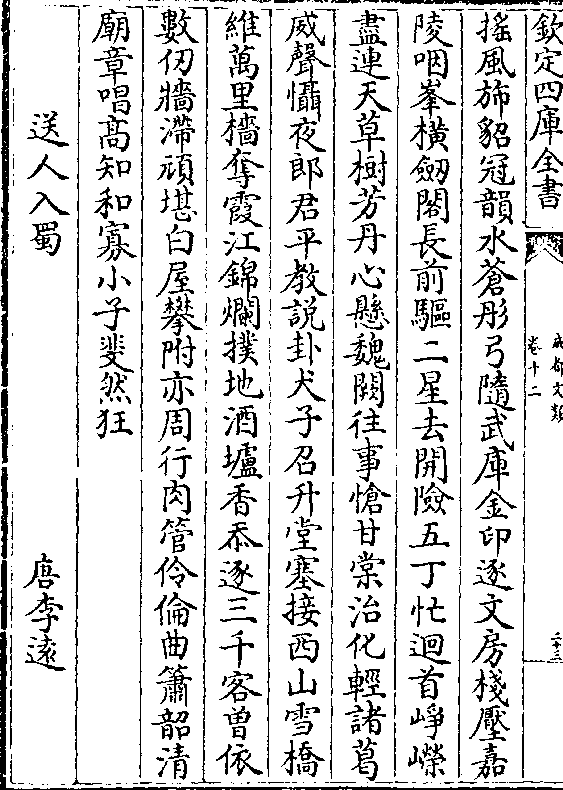 欽定四庫全書
成都文類
卷十二
二十三
搖風斾貂冠韻水蒼彤弓隨武庫金印逐文房棧壓嘉
陵咽峯橫劔閣長前驅二星去開險五丁忙迴首崢嶸
盡連天草樹芳丹心懸魏闕往事愴甘棠治化輕諸葛
威聲懾夜郎君平教説卦犬子召升堂塞接西山雪橋
維萬里檣奪霞江錦爛撲地酒壚香忝逐三千客曾依
數仞牆滯頑堪白屋攀附亦周行肉管伶倫曲簫韶清
廟章唱高知和寡小子斐然狂
送人入蜀
唐李逺